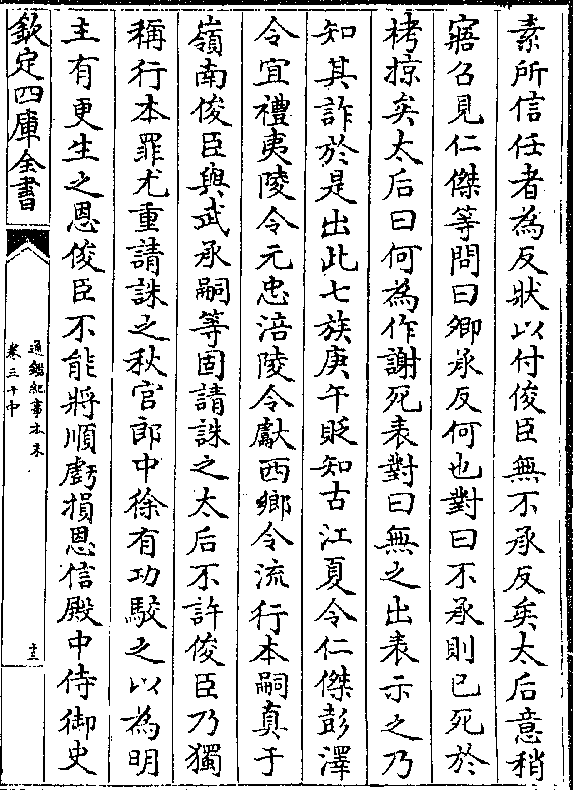 素所信任者為反狀以付俊臣無不承反矣太后意稍
寤召見仁傑等問曰卿承反何也對曰不承則已死於
拷掠矣太后曰何為作謝死表對曰無之出表示之乃
知其詐於是出此七族庚午貶知古江夏令仁傑彭澤
令宜禮夷陵令元忠涪陵令獻西鄉令流行本嗣真于
嶺南俊臣與武承嗣等固請誅之太后不許俊臣乃獨
稱行本罪尤重請誅之秋官郎中徐有功駮之以為明
主有更生之恩俊臣不能將順虧損恩信殿中侍御史
欽定四庫全書
通鑑紀事本末
卷三十中
十三